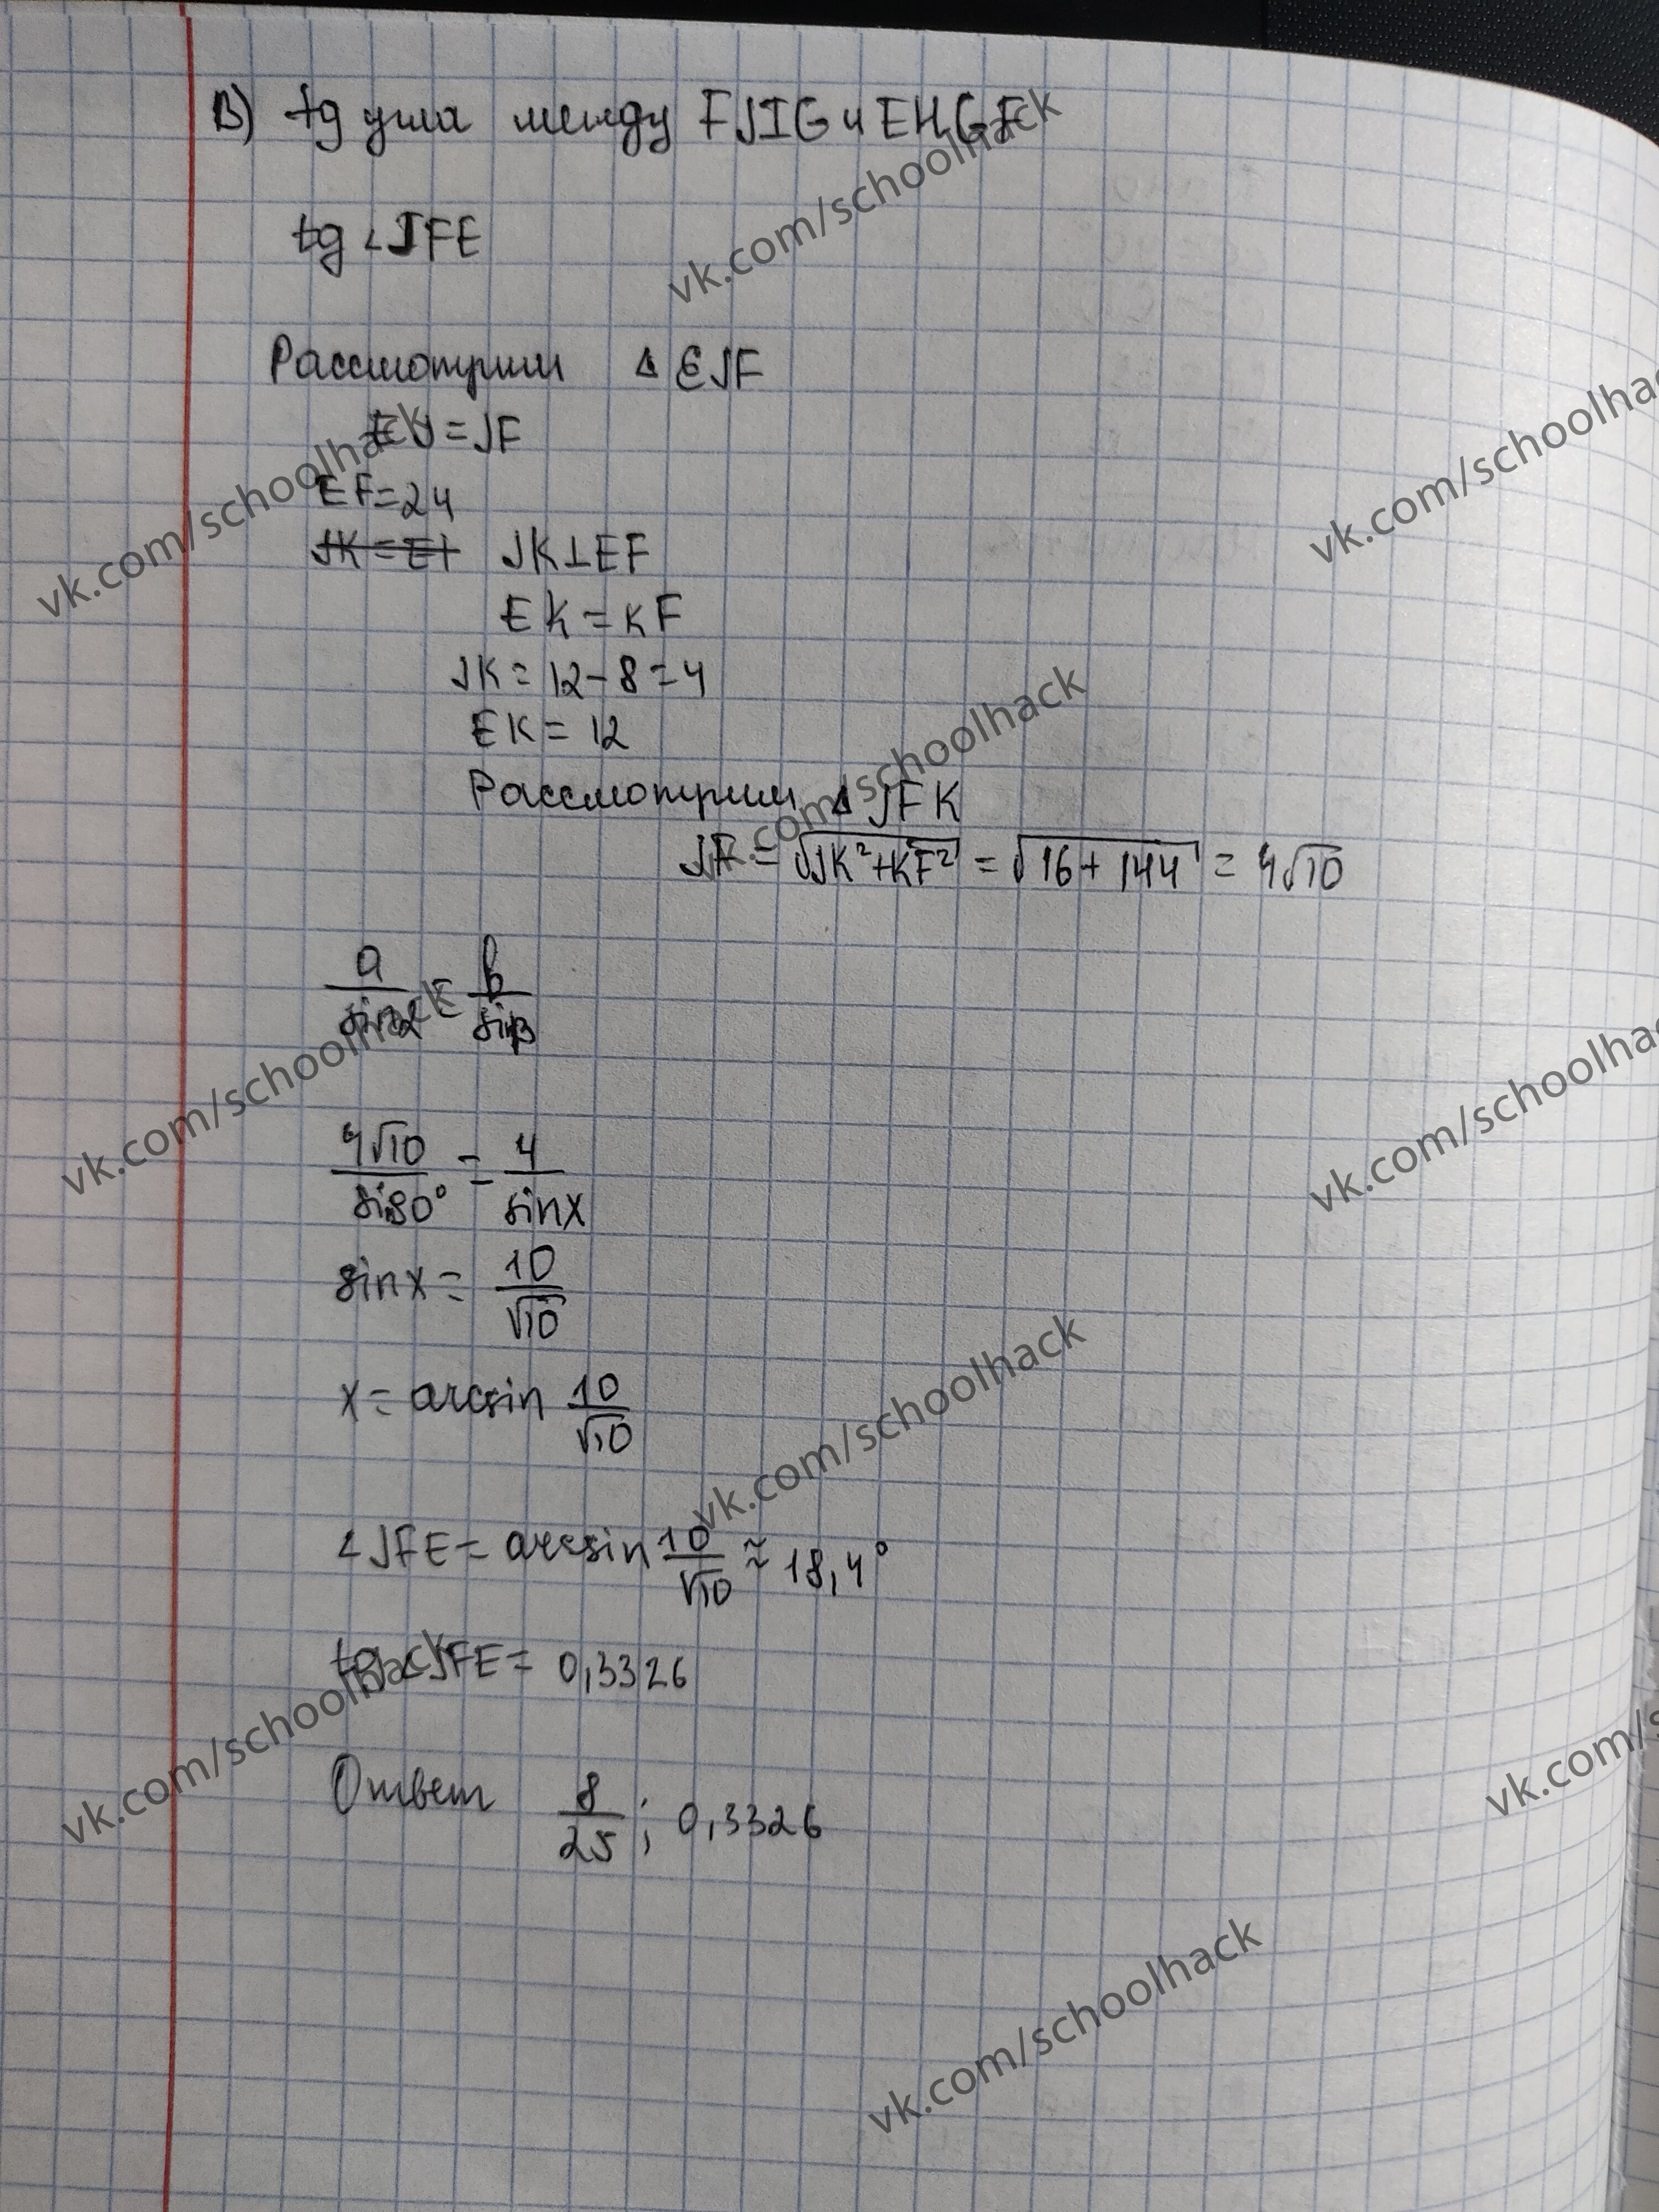 В) tg угла между FJIG и EHGF
tg ∠JFE
Рассмотрим Δ EJF
EJ = JF
EF = 24
JK = EF JK⊥EF
EK = KF
JK = 12 - 8 = 4
EK = 12
Рассмотрим Δ JFK
JF = √(JK² + KF²) = √(16 + 144) = 4√10
a/sinα = b/sinβ
4√10/sin90° = 4/sinx
sinx = 10/√10
x = arcsin 10/√10
∠JFE = arcsin 10/√10 ≈ 18,4°
tg∠JFE = 0,3326
Ответ 8/25; 0,3326
vk.com/schoolhack
vk.com/schoolhack
vk.com/schoolhack
vk.com/schoolhack
vk.com/schoolhack
vk.com/schoolhack
vk.com/schoolhack
vk.com/schoolhack
vk.com/s
vk.com/schoolhack